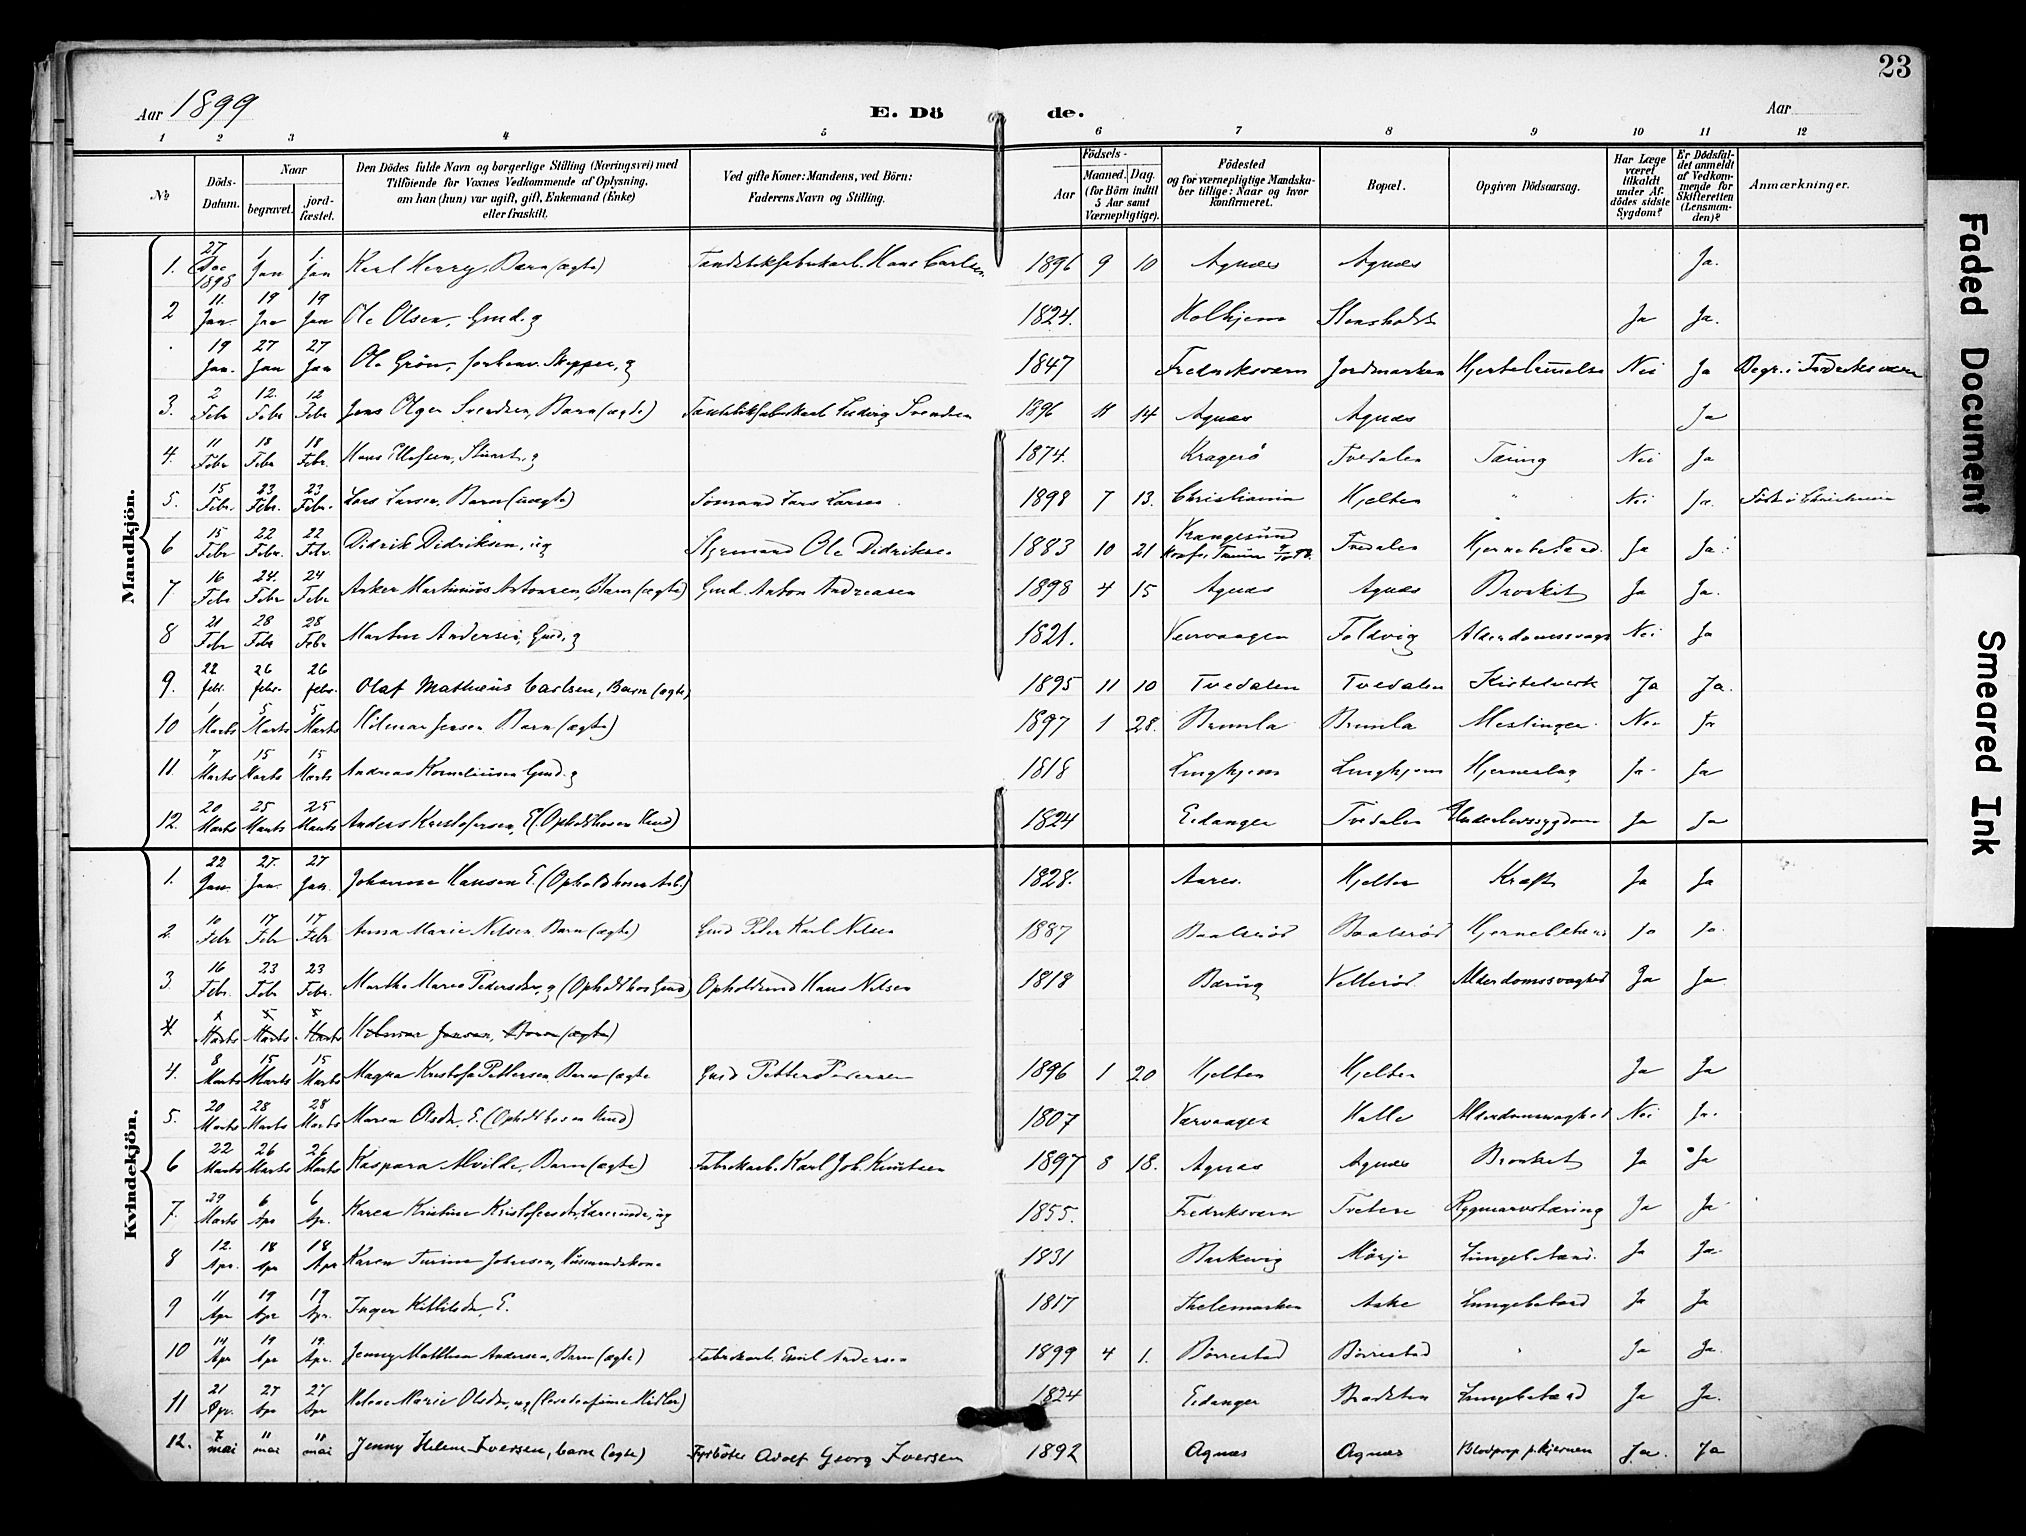 23
Aar 1899
E. Dö
de.
Aar
1 2 3 4 5 6 7 8 9 10 11 12
№
Döds-Datum.
Naar
begravet.
jord-fæstet.
Den Dödes fulde Navn og borgerlige Stilling (Næringsvei) med
Tilföiende for Voxnes Vedkommende af Oplysning,
om han (hun) var ugift, gift, Enkemand (Enke)
eller fraskilt.
Ved gifte Koner: Mandens, ved Börn:
Faderens Navn og Stilling.
Födsels-
Aar
Maaned. Dag.
(for Börn indtil
5 Aar samt
Værnepligtige).
Födested
og for værnepligtige Mandska-
ber tillige: Naar og hvor
konfirmeret.
Bopæl.
Opgiven Dödsaarsag.
Har Læge
været
tilkaldt
under Af-
dödes sidste
Sygdom?
Er Dödsfal-
det anmeldt
af Vedkom-
mende for
Skifteretten
(Lensman-
den)?
Anmærkninger.
Mandkjön.
1. 27 Dec 1898 1 Jan 1. Jan Karl Henry, Barn (ægte) Hans Carlsen 1896 9 10 Agnæs Agnæs Ja.
2 11. Jan. 19 Jan 19 Jan Ole Olsen, Gmd. g 1824. Holhjem Stensholt Ja Ja.
19 Jan. 27 Jan 27 Jan Ole Grön, forhenv. Skipper, g 1847 Fredriksværn Jordmarken Nei Ja Begr. i Frederiksværn
3. 2 Febr 12. Febr 12 Febr Jens Olger Svendsen, Barn (ægte) Ludvig Svendsen 1896 11 14 Agnæs Agnæs Ja
4. 11 Febr 18 Febr 18 Febr. Hans Ellefsen, g 1874. Kragerö Tvedalen Tæring Nei Ja
5. 15 Febr. 23 Febr. 23 Febr. Lars Larsen, Barn (uægte) Sömand Lars Larsen 1898 7 13. Christiania Hjelten " Nei Ja. Födt i Christiania
6 15 Febr 22 Febr. 22 Febr. Didrik Didriksen, ug Styrmand Ole Didriksen 1883 10 21 Tvedalen Hjernebetænd. Ja Ja.
7 16 Febr 24. Febr 24 Febr Anker Martinius Antonsen, Barn (ægte) Gmd. Anton Andreasen 1898 4 15 Agnæs Agnæs Bronkit Ja Ja.
8 21 Febr 28 Febr 28 Febr Martin Andersen, Gmd. g 1821. Veervaagen Foldvig Alderdomssvagh Nei Ja
9. 22 febr. 26 febr. 26 febr. Olaf Mathæus Carlsen, Barn (ægte) 1895 11 10 Tvedalen Tvedalen Kirtelverk Ja Ja.
10 1 Marts 5 Marts 5 Marts Hilmar Jensen Barn (ægte) 1897 1 28. Brumla Brumla Meslinger. Nei Ja
11. 7 Marts 15 Marts 15 Marts Andreas Korneliusen Gmd. g 1818 Linghjem Linghjem Hjerneslag Ja Ja
12. 20 Marts 25 Marts 25 Marts Anders Kristofersen, E. (Ophold hos en Gmd) 1824 Eidanger Tvedalen Underlivssygdom Ja Ja
Kvindekjön.
1. 22 Jan. 27. Jan. 27 Jan. Johanne Hansen E. (Ophold hos en Arb.) 1828. Aares. Hjelten Kræft Ja Ja
2. 10 Febr 17 Febr 17 Febr. Anna Marie Nilsen, Barn (ægte) Gmd Peder Karl Nilsen 1887 Baalsrød Baalsrød Ja Ja.
3. 16 Febr. 23 Febr 23 Febr. Marthe Marie Pedersdtr., g (Ophold hos Gmd) Opholdsmd Hans Nilsen 1818 Bæring Vellerød Alderdomssvaghed Ja Ja
4 1 Marts 5 Marts 5 Marts Hilmar Jensen, Barn (ægte)
4. 8 Marts 15 Marts 15 Marts Magna Kristofa Pettersen, Barn (ægte Gmd Petter Pedersen 1896 1 20 Hjelten Hjelten Ja Ja
5. 20 Marts 28 Marts 28 Marts Maren Olsdtr. E. (Ophold hos en Gmd) 1807 Værvaagen Halle Alderdomssvaghed Nei Ja.
6 22 Marts 26 Marts 26 Marts Kaspara Alvilde, Barn (ægte) Fabrikarb. Karl Joh. Knutsen 1897 8 18. Agnæs Agnæs Bronkit Ja Ja
7. 29 Marts 6 Apr 6 Apr. Karen Kristine Kristofersdtr., Lærerinde, ug 1855. Fredriksværn Tvetene Rygmarvstæring Ja Ja
8 12. Apr. 18 Apr 18 Apr Karen Turine Johnsen, Husmandskone 1831 Barkevig Mörje Lungebetænd. Ja Ja.
9 11 Apr 19 Apr 19 Apr. Inger Kittilsdtr E. 1817 Thelemarken Aske Lungebetænd Ja Ja
10 14 Apr 19 Apr 19. Apr. Jenny Mathea Andersen, Barn (ægte) Fabrikarb. Emil Andersen 1899 4 1. Börrestad Börrestad Ja Ja.
11 21 Apr. 27 Apr 27 Apr Helene Marie Olsdtr., ug (Leved af sine Midler) 1824 Eidanger Lungebetænd Ja Ja.
12. 7 mai 11 mai 11 mai Jenny Helene Iversen, barn (ægte) Fyrböter Adolf Georg Iversen 1892 Agnæs Agnæs Blodprop p. hjernen Ja. Ja
Faded Document
Smeared Ink